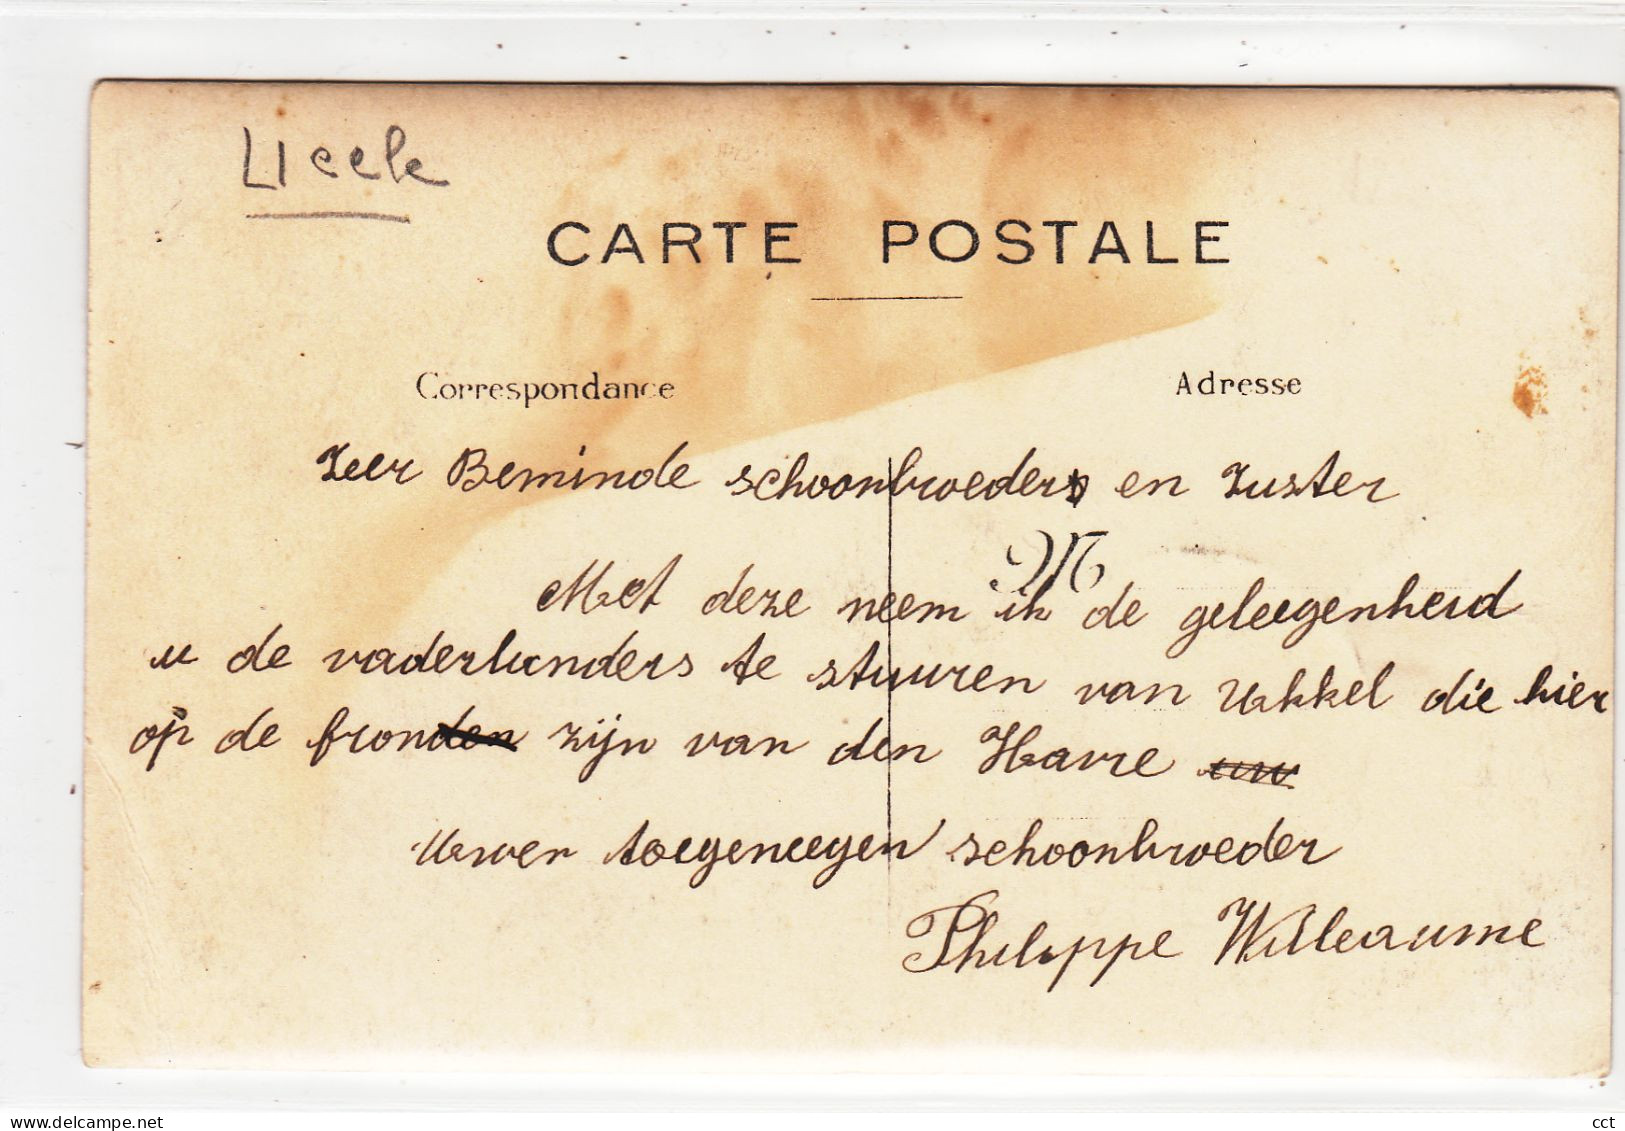 Uccle
CARTE POSTALE
Correspondance
Adresse
Zeer Beminde schoonbroeder en Zuster
Met deze neem ik de geleegenheid
u de vaderlanders te stuuren van Ukkel die hier
op de fronden zijn van den Havre uw
Uwen toegeneegen schoonbroeder
Philippe Willeaume
www.delcampe.net
cct